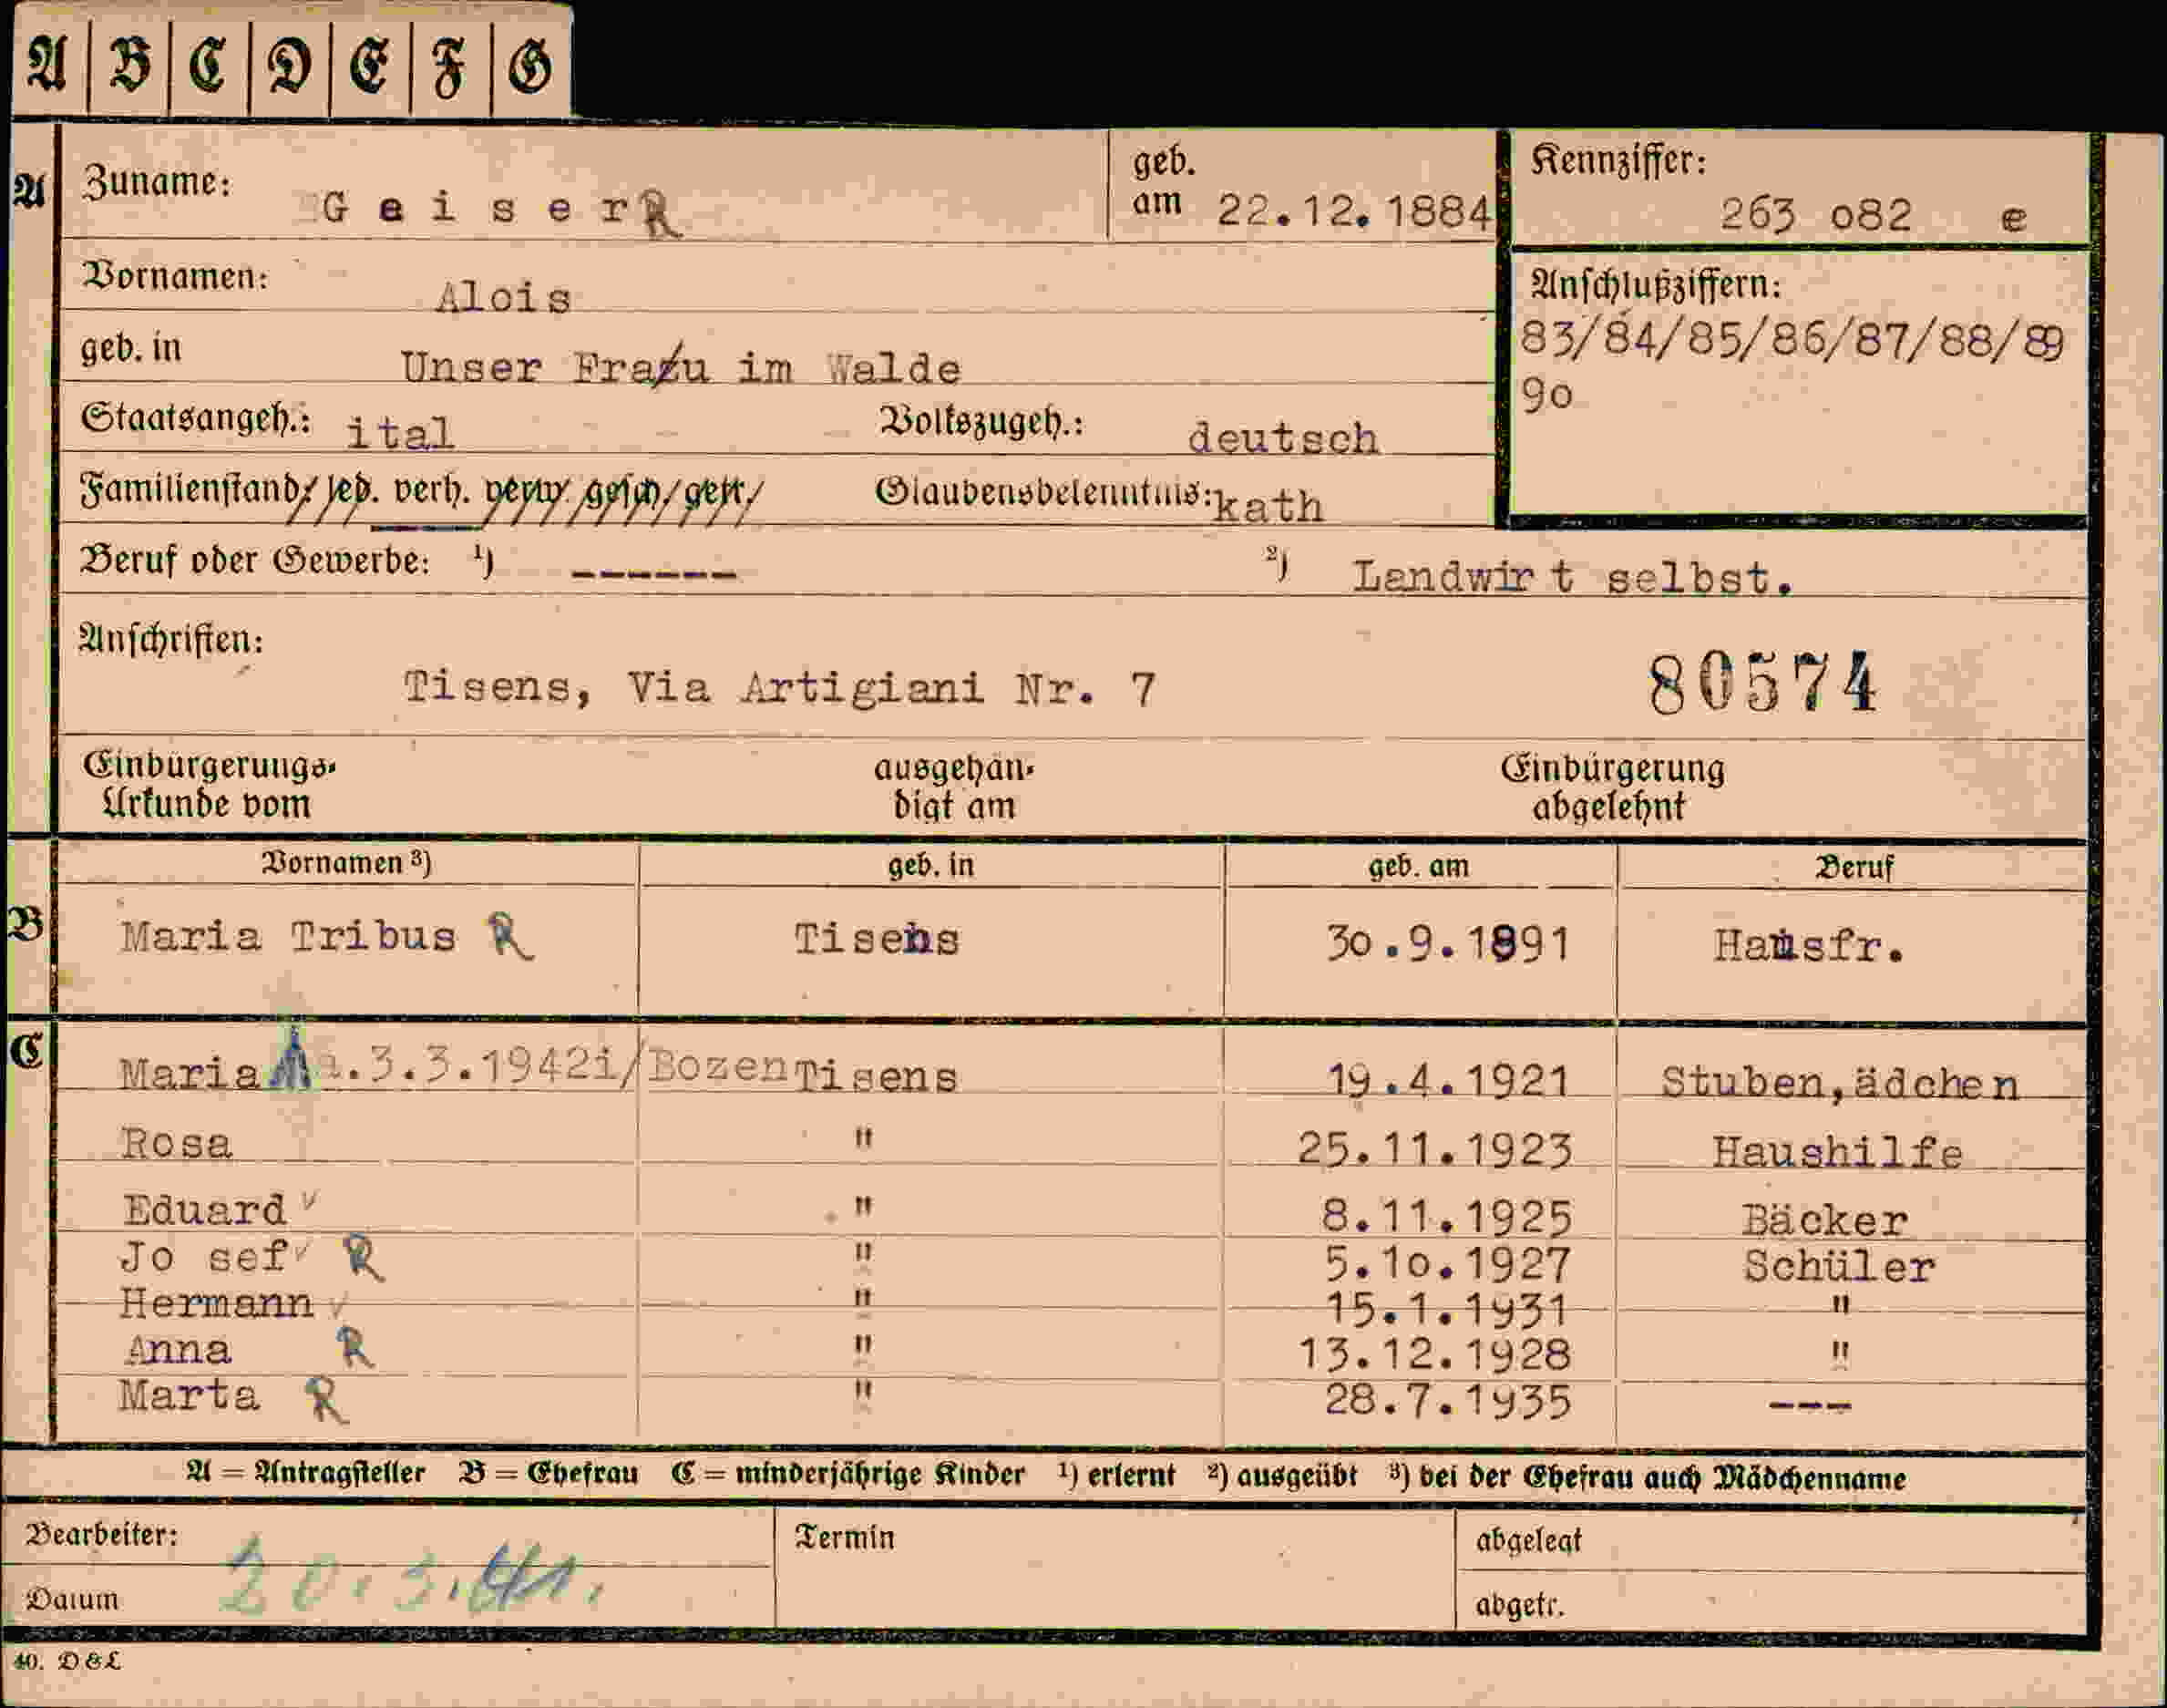 A B C D E F G
A Zuname: Geiser R geb. am 22.12.1884 Kennziffer: 263 082 e
Vornamen: Alois Anschlußziffern:
83/84/85/86/87/88/89
90
geb. in Unser Frau im Walde
Staatsangeh.: ital Volkszugeh.: deutsch
Familienstand led. verh. verw. gesch. getr. Glaubensbekenntnis: kath
Beruf oder Gewerbe: ¹) ------ ²) Landwirt selbst.
Anschriften:
Tisens, Via Artigiani Nr. 7 80574
Einbürgerungs- ausgehän- Einbürgerung
Urkunde vom digt am abgelehnt
Vornamen ³) geb. in geb. am Beruf
B Maria Tribus R Tisens 30.9.1891 Hausfr.
C Maria a.3.3.1942i/Bozen Tisens 19.4.1921 Stuben,ädchen
Rosa " 25.11.1923 Haushilfe
Eduard " 8.11.1925 Bäcker
Jo sef R " 5.10.1927 Schüler
Hermann " 15.1.1931 "
Anna R " 13.12.1928 "
Marta R " 28.7.1935 ---
A = Antragsteller B = Ehefrau C = minderjährige Kinder ¹) erlernt ²) ausgeübt ³) bei der Ehefrau auch Mädchenname
Bearbeiter: Termin abgelegt
Datum 20.3.41. abgetr.
40. D&L